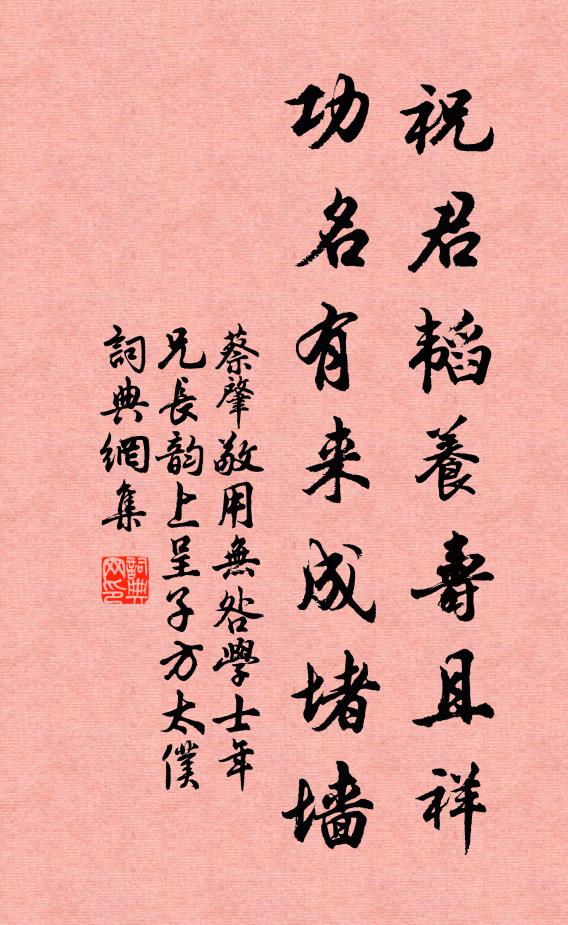 祝君韬養壽且祥
功名有来成堵墙
蔡肇敬用無咎學士年
兄長韵上呈子方太僕
詞典網集
詞典
网印